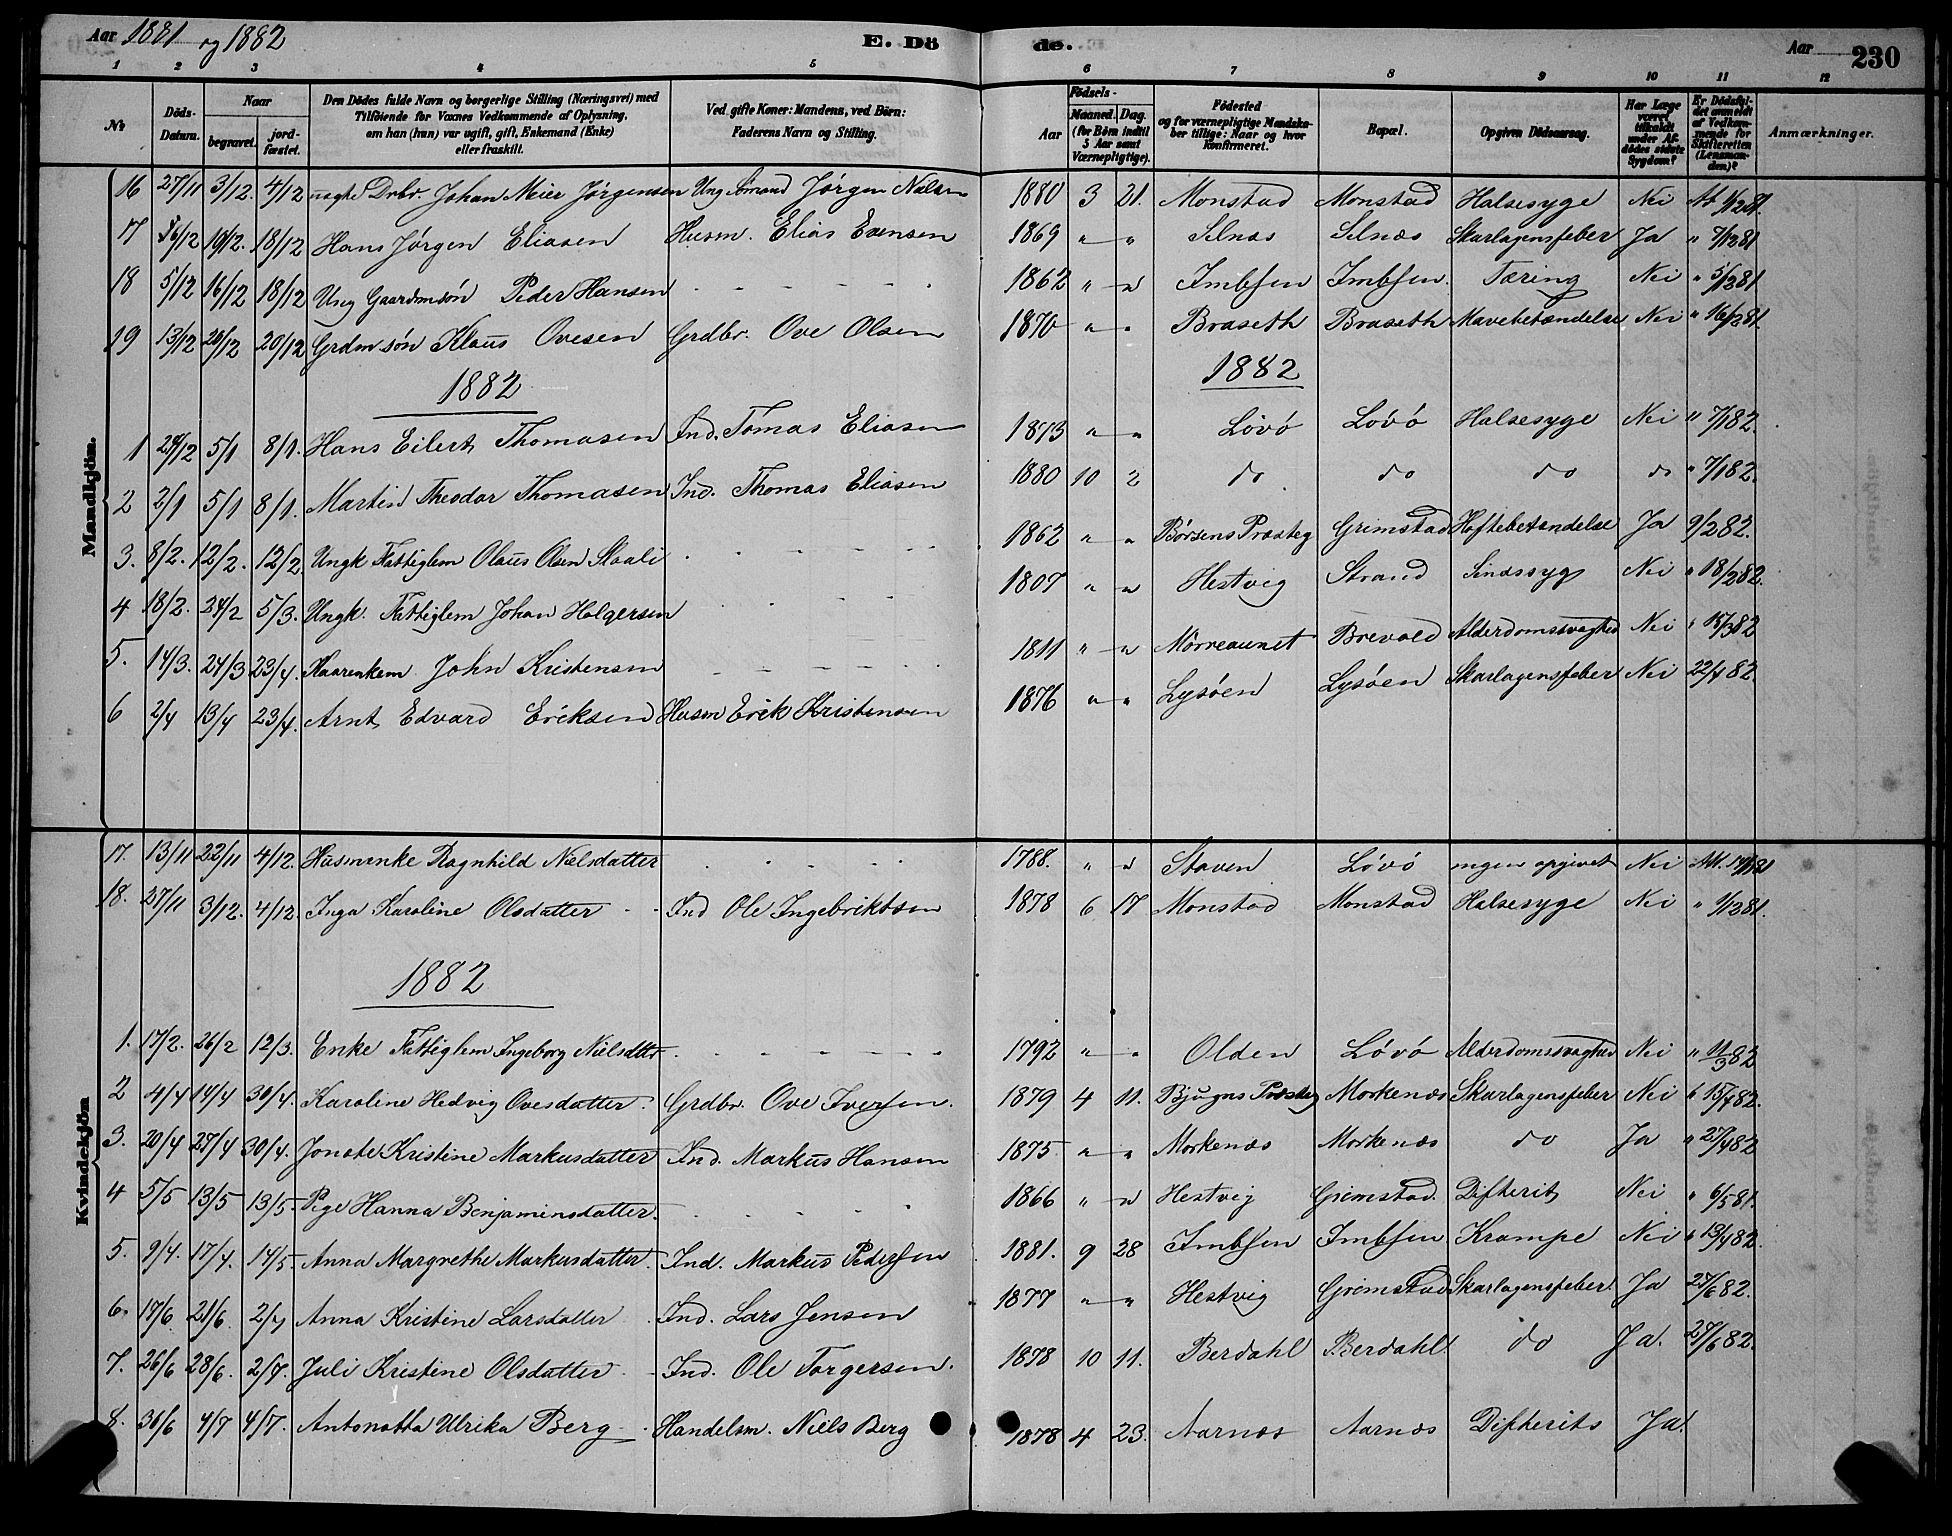 Aar 1881 og 1882 E. Dö de. Aar 230
1 2 3 4 5 6 7 8 9 10 11 12
No
Döds-Datum.
Naar begravet. jord-fæstet.
Den Dödes fulde Navn og borgerlige Stilling (Næringsvei) med Tilföiende for Voxnes Vedkommende af Oplysning, om han (hun) var ugift, gift, Enkemand (Enke) eller fraskilt.
Ved gifte Koner: Mandens, ved Börn: Faderens Navn og Stilling.
Födsels-
Aar Maaned. Dag. (for Börn indtil 5 Aar samt Værnepligtige).
Födested og for værnepligtige Mandskaber tillige: Naar og hvor konfirmeret.
Bopæl.
Opgiven Dödsaarsag.
Har Læge været tilkaldt under Afdödes sidste Sygdom?
Er Dödsfaldet anmeldt af Vedkommende for Skifteretten (Lensmanden)?
Anmærkninger.
Mandkjön.
16 27/11 3/12. 4/12 uægte Drbr. Johan Meier Jørgensen Ung Jørgen Nielsen 1880 3 21. Monstad Monstad Halsesyge Nei
17 10/12. 18/12 Hans Jørgen Eliasen Husm. Elias Evensen 1869 " " Selnæs Selnæs Skarlagensfeber Ja " 7/1281
18 5/12 16/12 18/12 Ung Gaardmsøn Peder Hansen 1862 " " Imbsen Imbsen. Tæring Nei " 5/1281
19 13/12 20/12 20/12 Grdm.søn Klaus Ovesen Grdbr. Ove Olsen 1870 " " Braseth Braseth Mavebetændelse Nei " 16/1281
1882 1882
1 29/12 5/1 8/1. Hans Eilert Thomasen Ind. Tomas Eliasen 1873 " " Løvø Løvø Halsesyge Nei " 7/182.
2 2/1 5/1 8/1. Martin Theodor Thomasen Ind. Thomas Eliasen 1880 10 2 do do do do " 7/182.
3. 8/2. 12/2. 12/2. Ungk Fattiglem Olaus Olsen 1862 " " Børsens Præsteg Grimstad Hoftebetændelse Ja 9/282.
4 18/2. 24/2 5/3. Ungk. Fattiglem Johan Holgersen 1807 " " Hestvig Strand Sindssyg Nei " 18/282.
5. 14/3. 24/3 23/4. Kaarenkem John Kristensen 1811 " " Mørreaunet Brevold Alderdomssvaghed Nei " 15/382
6 2/4 13/4 23/4. Arnt Edvard Eriksen Husm Erik Kristensen 1876 " " Lysøen Lysøen Skarlagensfeber Nei 22/482.
Kvindekjön
17. 13/11 22/11 4/12. Husmenke Ragnhild Nielsdatter 1788. " " Staven Løvø ingen opgivet Nei
18. 27/11 3/12. 4/12. Inga Karoline Olsdatter Ind Ole Ingebriktsen 1878 6 17 Monstad Monstad Halsesyge Nei " 1/1281.
1882
1. 17/2. 26/2 12/3. Enke Fattiglem Ingeborg Nielsdtter 1792 " " Olden Løvø Alderdomssvaghed Nei " 11/382
2 4/4 14/4 30/4. Karoline Hedvig Ovesdatter. Grdbr. Ove Iversen. 1879 4 11. Bjugns Præsteg Morkenæs Skarlagensfeber Nei " 15/482.
3. 20/4 27/4 30/4. Jonete Kristine Markusdatter Ind. Markus Hansen 1875 " " Morkenæs Morkenæs do Ja " 27/482
4 5/5 13/5 13/5. Pige Hanna Benjaminsdatter. 1866 " " Hestvig Grimstad. Difterit Nei " 6/581.
5. 9/4. 17/4. 14/5. Anna Margrethe Markusdatter. Ind. Markus Pedersen 1881. 9 28 Imbsen Imbsen Krampe Nei " 13/482.
6. 17/6 21/6. 2/7 Anna Kristine Larsdatter Ind. Lars Jensen 1877 " " Hestvig Grimstad Skarlagensfeber. Ja 27/682.
7. 26/6 28/6. 2/7. Juli Kristine Olsdatter Ind. Ole Torgersen. 1878 10 11. Berdahl Berdahl. do Ja. 27/682.
8. 30/6 4/7 4/7. Antonetta Ulrika Berg Handelsm. Niels Berg 1878 4 23. Aarnæs Aarnæs Difterits Ja.